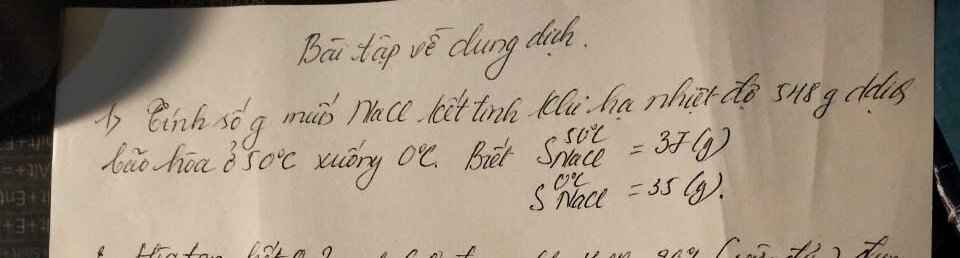 Bài tập về dung dịch.
1, Tính số g muối NaCl kết tinh khi hạ nhiệt độ 548 g ddịch
bão hòa ở 50°C xuống 0°C. Biết S 50°C NaCl = 37 (g)
S 0°C NaCl = 35 (g).